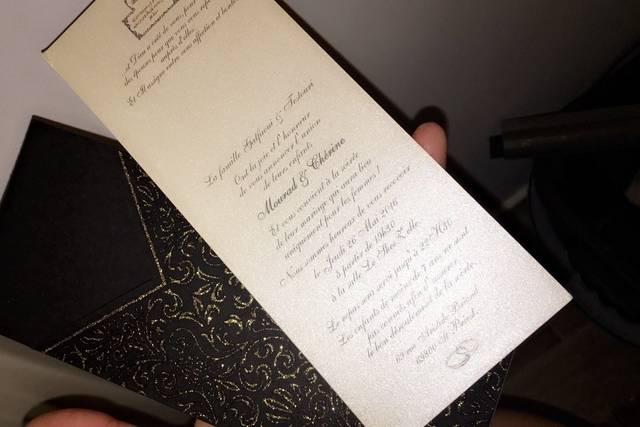 et Dieu a créé de vous, pour vous
des épouses pour que vous vous
auprès d'elles
Et Il
La famille Galfaoui & Testouri
Ont la joie et l'honneur
de vous annoncer l'union
de leurs enfants
Mourad & Chérine
Et vous convient à la soirée
de leur mariage qui aura lieu
uniquement pour les femmes !
Nous sommes heureux de vous recevoir
le Jeudi 26 Mai 2016
à partir de 19h30
à la salle Le
Le repas sera servi jusqu'à 22H30
Les enfants de moins de 7 ans ne sont
pas conviés afin d'assurer
le bon déroulement de la soirée
69800 St Priest